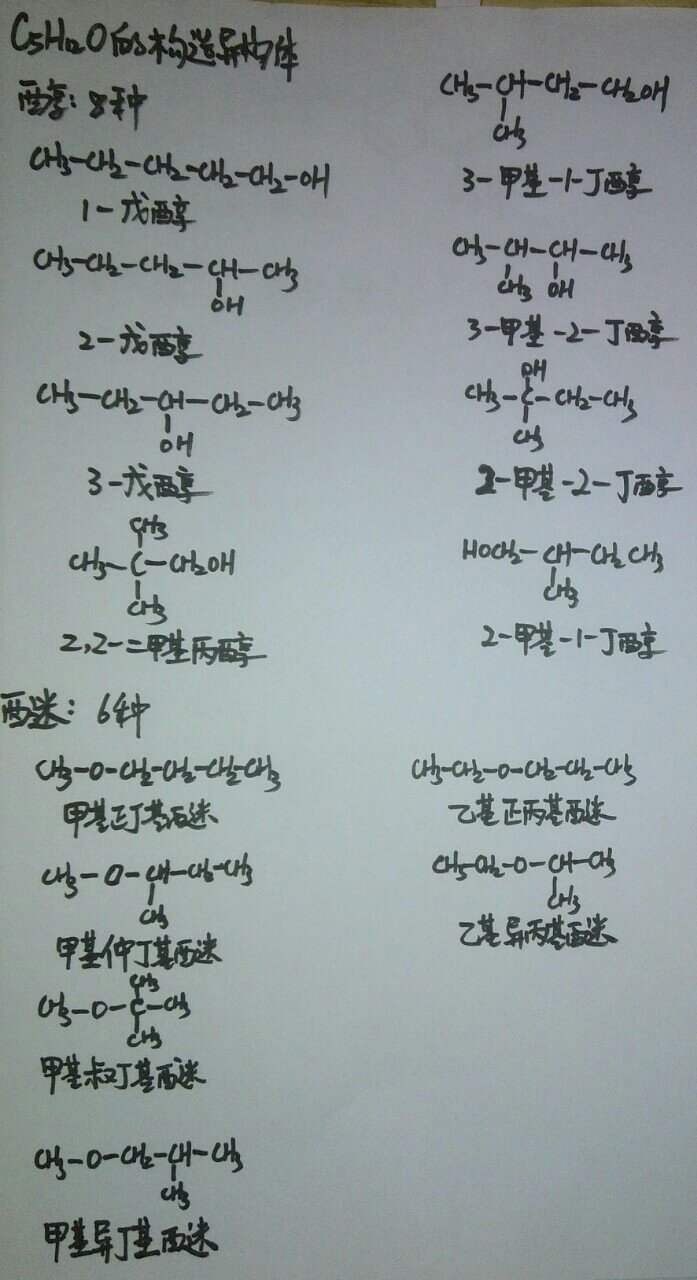 C5H12O的构造异构体
醇: 8种
CH3-CH2-CH2-CH2-CH2-OH
1-戊醇
CH3-CH2-CH2-CH-CH3
OH
2-戊醇
CH3-CH2-CH-CH2-CH3
OH
3-戊醇
CH3
CH3-C-CH2OH
CH3
2,2-二甲基丙醇
CH3-CH-CH2-CH2OH
CH3
3-甲基-1-丁醇
CH3-CH-CH-CH3
CH3 OH
3-甲基-2-丁醇
OH
CH3-C-CH2-CH3
CH3
2-甲基-2-丁醇
HOCH2-CH-CH2CH3
CH3
2-甲基-1-丁醇
醚: 6种
CH3-O-CH2-CH2-CH2-CH3
甲基正丁基醚
CH3-O-CH-CH2-CH3
CH3
甲基仲丁基醚
CH3
CH3-O-C-CH3
CH3
甲基叔丁基醚
CH3-O-CH2-CH-CH3
CH3
甲基异丁基醚
CH3-CH2-O-CH2-CH2-CH3
乙基正丙基醚
CH3-CH2-O-CH-CH3
CH3
乙基异丙基醚